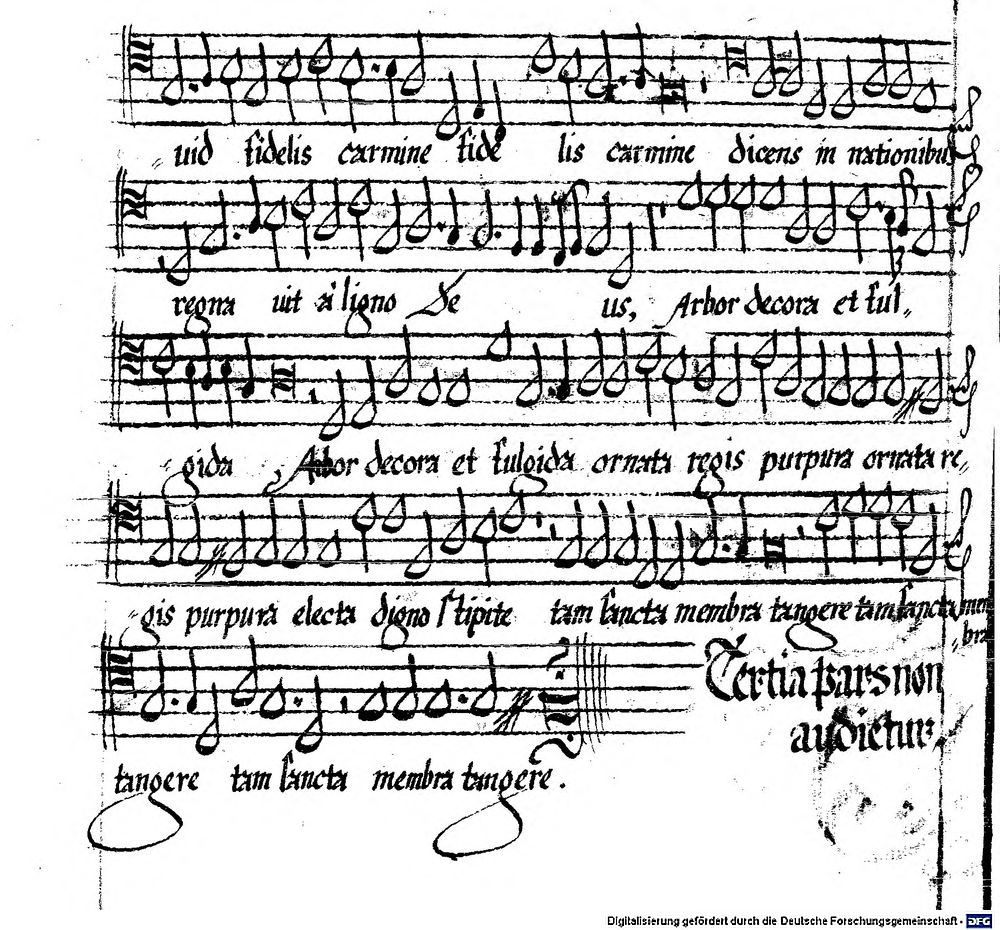 uid fidelis carmine fide lis carmine dicens in nationibus
regna uit a ligno De us, Arbor decora et ful„
gida , Arbor decora et fulgida ornata regis purpura ornata re„
„gis purpura electa digno stipite tam sancta membra tangere tam sancta mem
„bra
tangere tam sancta membra tangere .
Tertia pars non
audietur.
Digitalisierung gefördert durch die Deutsche Forschungsgemeinschaft - DFG